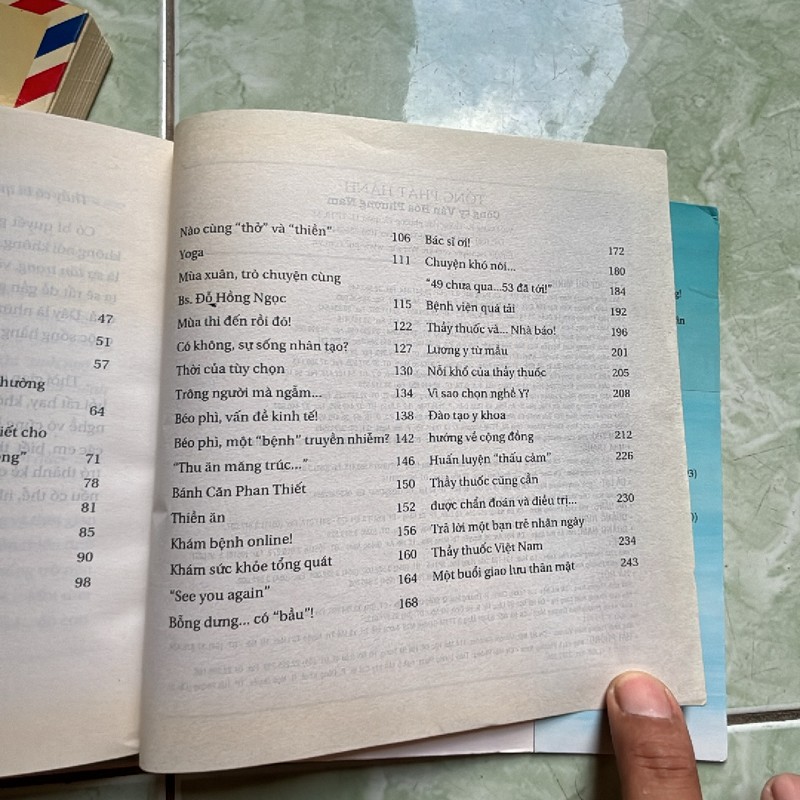 47
51
57
hường
64
iết cho
ng” 71
78
81
85
90
98
Nào cùng “thở” và “thiền” 106
Yoga 111
Mùa xuân, trò chuyện cùng
Bs. Đỗ Hồng Ngọc 115
Mùa thi đến rồi đó! 122
Có không, sự sống nhân tạo? 127
Thời của tùy chọn 130
Trông người mà ngẫm... 134
Béo phì, vấn đề kinh tế! 138
Béo phì, một “bệnh” truyền nhiễm? 142
“Thu ăn măng trúc...” 146
Bánh Căn Phan Thiết 150
Thiền ăn 152
Khám bệnh online! 156
Khám sức khỏe tổng quát 160
“See you again” 164
Bỗng dưng... có “bầu”! 168
Bác sĩ ơi! 172
Chuyện khó nói... 180
“49 chưa qua...53 đã tới!” 184
Bệnh viện quá tải 192
Thầy thuốc và... Nhà báo! 196
Lương y từ mẫu 201
Nỗi khổ của thầy thuốc 205
Vì sao chọn nghề Y? 208
Đào tạo y khoa
hướng về cộng đồng 212
Huấn luyện “thấu cảm” 226
Thầy thuốc cũng cần
được chẩn đoán và điều trị... 230
Trả lời một bạn trẻ nhân ngày
Thầy thuốc Việt Nam 234
Một buổi giao lưu thân mật 243